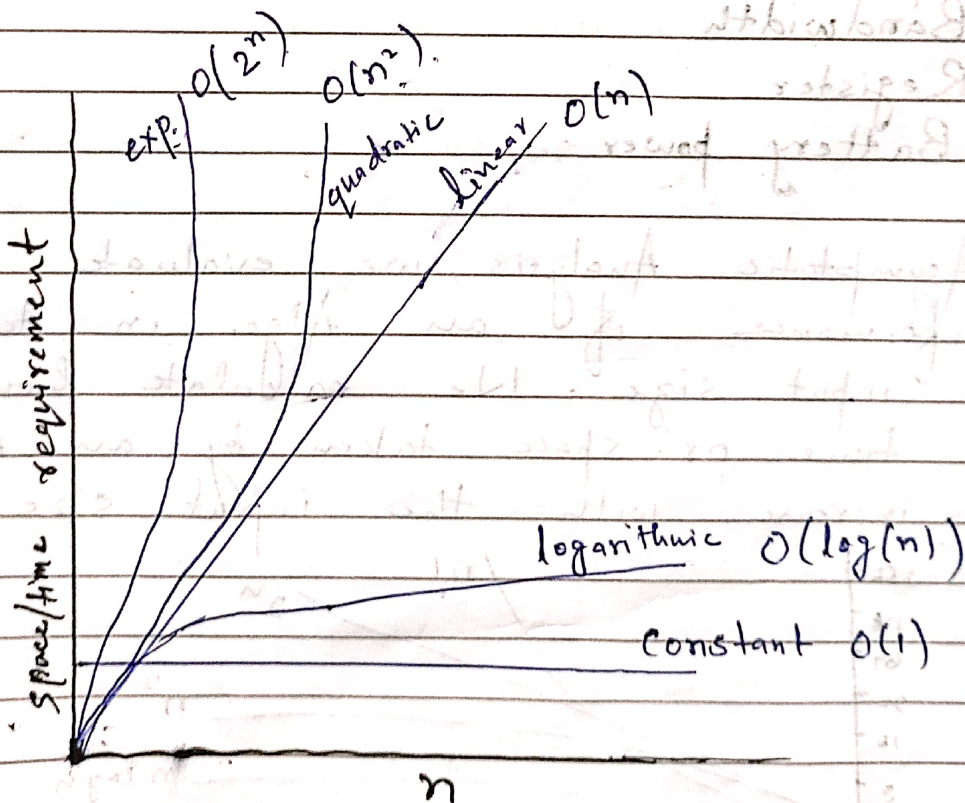 O(2ⁿ)
O(n²).
O(n)
exp.
quadratic
linear
space/time requirement
logarithmic O(log(n))
Constant O(1)
n